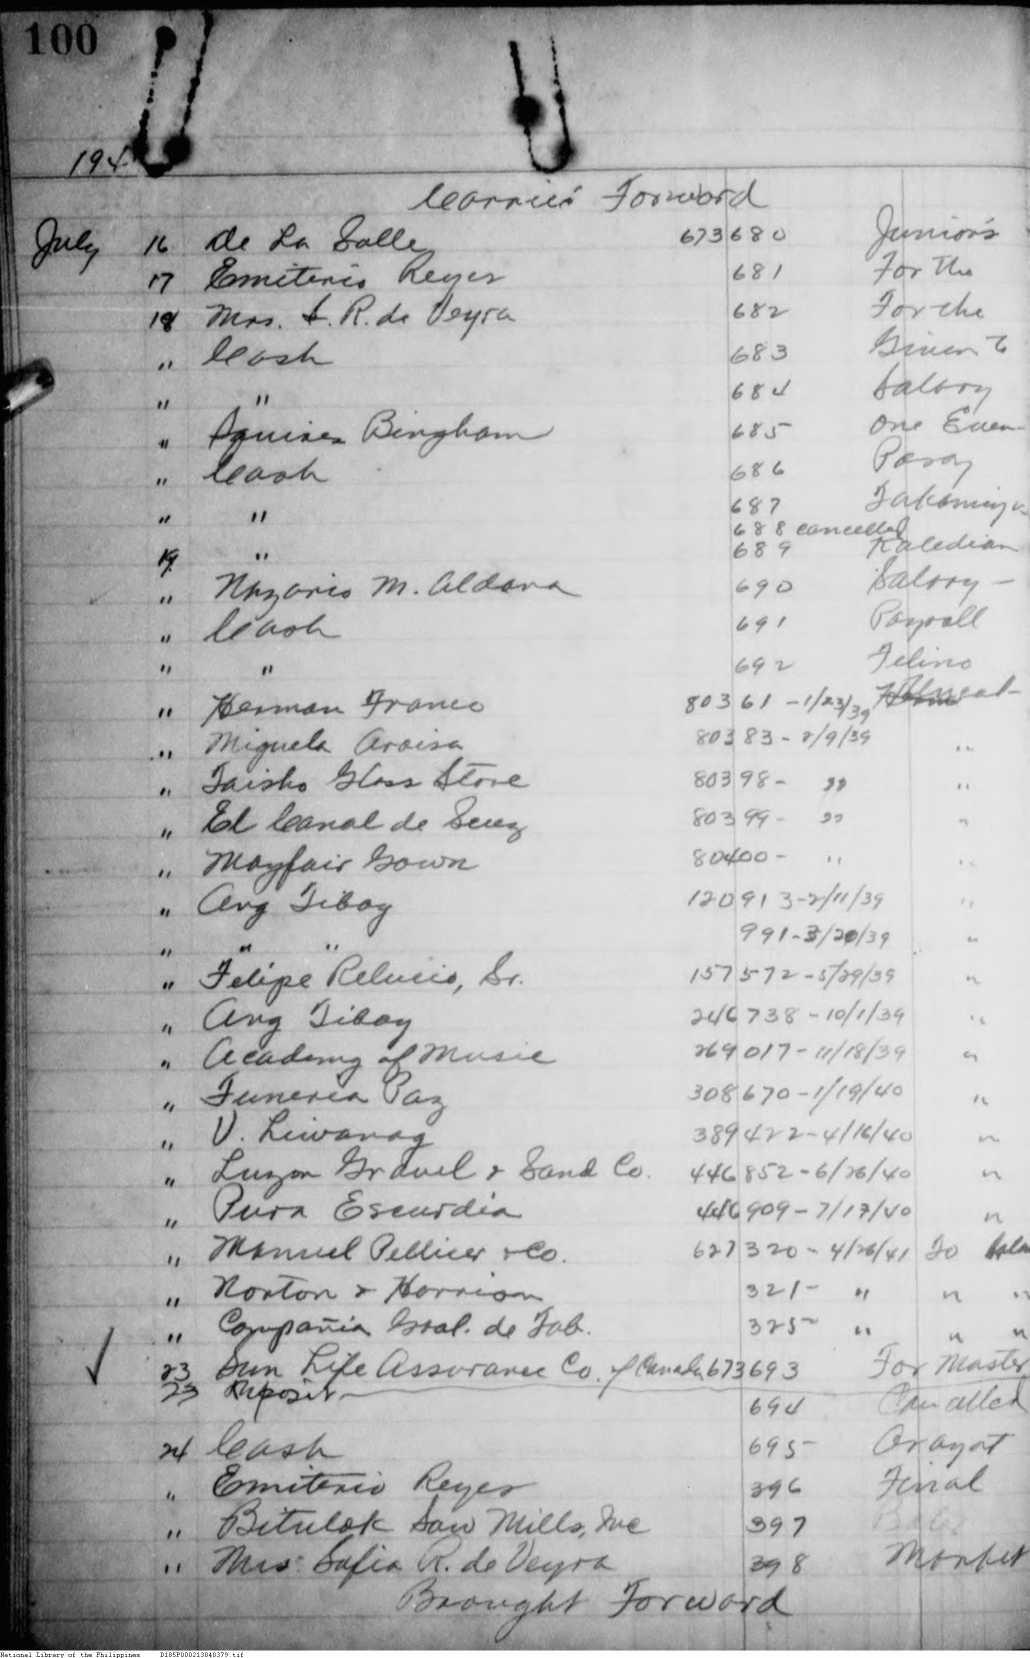 100
194
Carried Forward
July 16 De La Salle 673680 Juniors
17 Emiterio Reyes 681 For the
18 Mrs. S. R. de Veyra 682 For the
" Cash 683 Given to
" " 684 Salary
" Squires Bingham 685 One Even-
" Cash 686 Paray
" " 687
688 cancelled
19 " 689
" Nazario M. Aldana 690 Salary -
" Cash 691 Payroll
" " 692 Felino
" Herman Franco 80361 - 1/23/39
" Miguela 80383 - 2/9/39 "
" Taisho Glass Store 80398 - " "
" El Canal de Suez 80399 - " "
" Mayfair Gown 80400 - " "
" Ang Tibay 120913 - 2/11/39 "
" " " 991 - 3/20/39 "
" Felipe Relucio, Sr. 157572 - 5/29/39 "
" Ang Tibay 246738 - 10/1/39 "
" Academy of Music 269017 - 11/18/39 "
" Funeria Paz 308670 - 1/19/40 "
" V. Liwanag 389422 - 4/16/40 "
" Luzon Gravel & Sand Co. 446852 - 6/26/40 "
" Pura Escurdia 446909 - 7/17/40 "
" Manuel Pellicer & Co. 627320 - 4/26/41 To
" Norton & Harrison 321 - " " "
" Compañia Gral. de Tab. 325 - " " "
23 Sun Life Assurance Co. of Canada 673693 For Master
23 Deposit 694 Cancelled
24 Cash 695 Arayat
" Emiterio Reyes 396 Final
" Bitulok Saw Mills, Inc 397
" Mrs. Sofia R. de Veyra 398 Market
Brought Forward
National Library of the Philippines D185P000213040379.tif